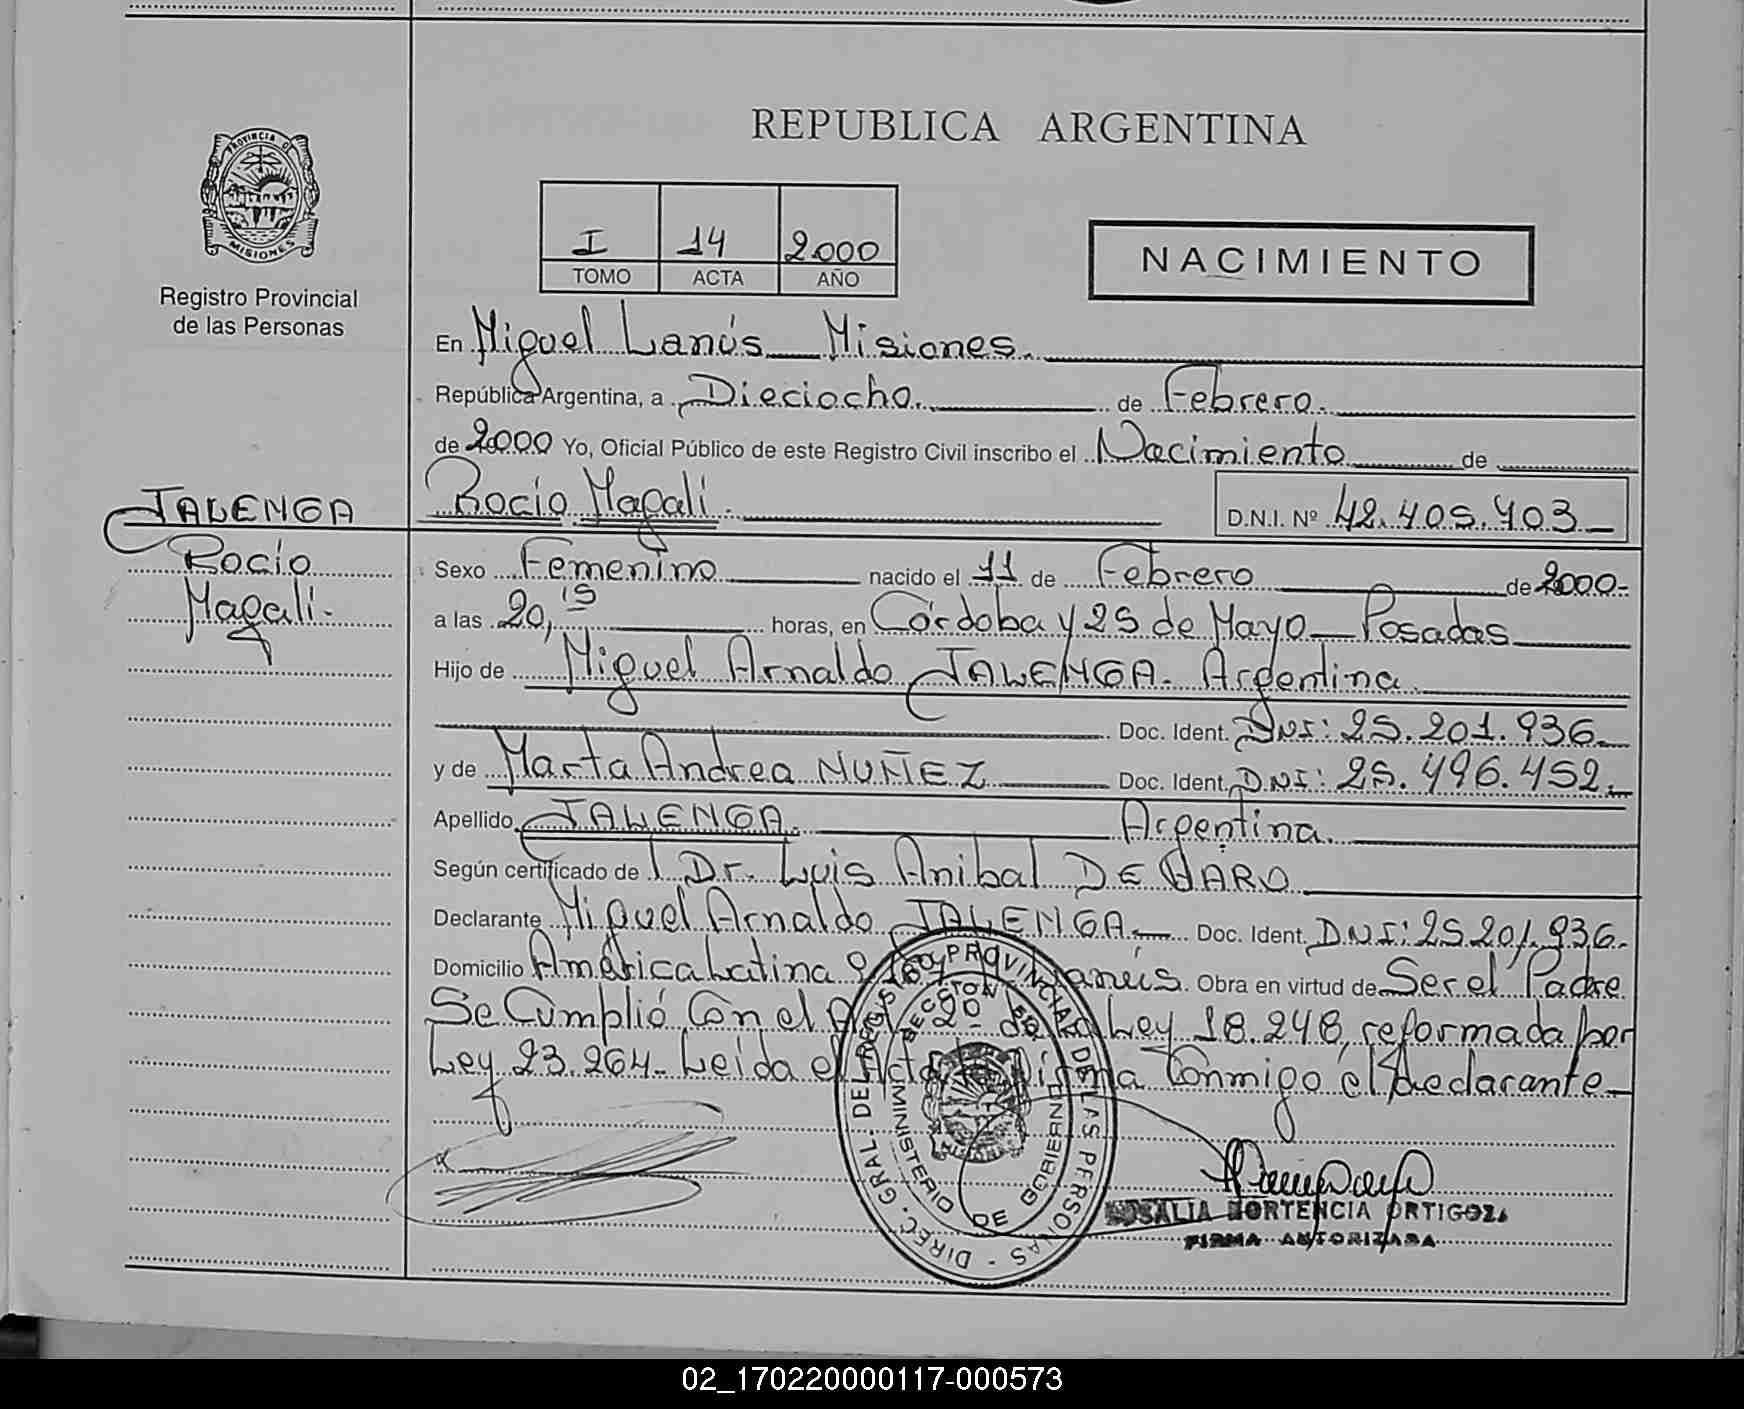 REPUBLICA ARGENTINA
PROVINCIA DE
MISIONES
Registro Provincial
de las Personas
I 14 2000
TOMO ACTA AÑO
NACIMIENTO
En Miguel Lanús — Misiones.
República Argentina, a Dieciocho. de Febrero.
de 2000 Yo, Oficial Público de este Registro Civil inscribo el Nacimiento de
Rocío Magali. D.N.I. Nº 42.405.403
JALENGA
Rocío
Magali.
Sexo Femenino nacido el 11 de Febrero de 2000-
a las 20,15 horas, en Córdoba y 25 de Mayo — Posadas
Hijo de Miguel Arnaldo JALENGA. Argentina
Doc. Ident. DNI: 25.201.936
y de Marta Andrea NUÑEZ Doc. Ident. DNI: 25.496.452
Apellido JALENGA. Argentina.
Según certificado de Dr. Luis Anibal DE HARO
Declarante Miguel Arnaldo JALENGA — Doc. Ident. DNI: 25.201.936.
Domicilio América Latina Lanús. Obra en virtud de Ser el Padre
Se Cumplió Con el Art 2º de la Ley 18.248, reformada por
Ley 23.264. Leída el Acta Firma Conmigo el declarante
DIREC. GRAL. DEL REGISTRO PROVINCIAL DE LAS PERSONAS -
MINISTERIO DE GOBIERNO
SECCION
ROSALIA HORTENCIA ORTIGOZA
FIRMA AUTORIZADA
02_170220000117-000573